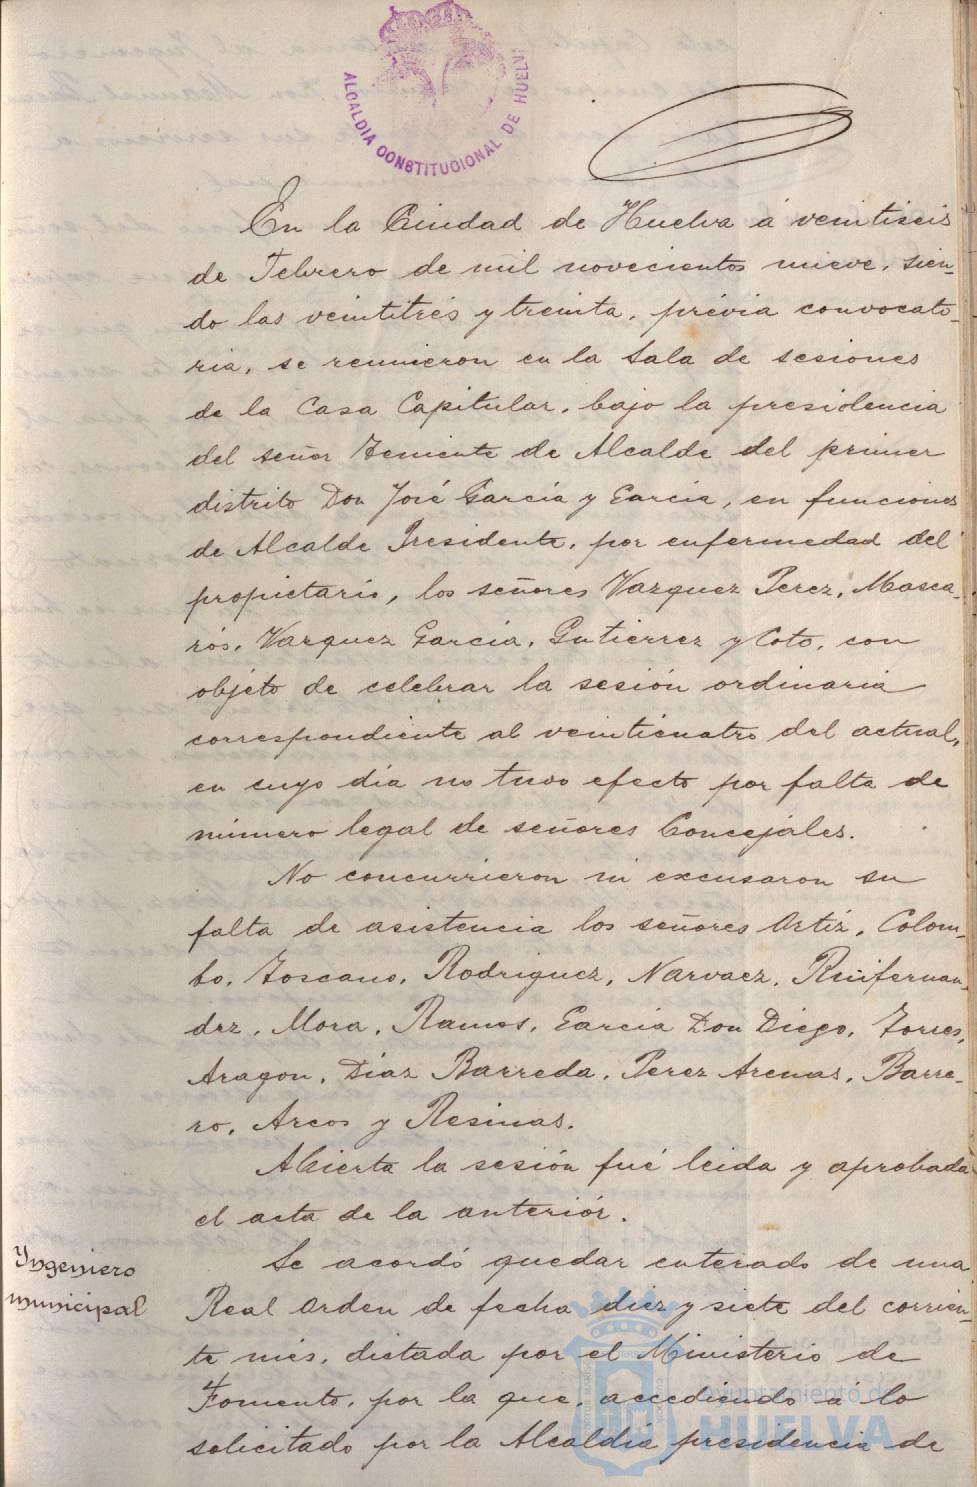 ALCALDIA CONSTITUCIONAL DE HUELVA
En la Ciudad de Huelva á veintiseis
de Febrero de mil novecientos nueve, sien-
do las veintitrés y treinta, prévia convocato-
ria, se reunieron en la Sala de sesiones
de la Casa Capitular, bajo la presidencia
del señor Teniente de Alcalde del primer
distrito Don José García y García, en funciones
de Alcalde Presidente, por enfermedad del
propietario, los señores Vazquez Perez, Masca-
rós, Vazquez García, Gutierrez y Coto, con
objeto de celebrar la sesión ordinaria
correspondiente al veinticuatro del actual,
en cuyo día no tuvo efecto por falta de
número legal de señores Concejales.
No concurrieron ni excusaron su
falta de asistencia los señores Ortiz, Colom-
bo, Toscano, Rodriguez, Narvaez, Ruifernan-
dez, Mora, Ramos, García Don Diego, Torres,
Aragon, Díaz Barreda, Perez Arenas, Barre-
ro, Arcos y Resinas.
Abierta la sesión fué leida y aprobada
el acta de la anteriór.
Ingeniero
municipal
Se acordó quedar enterado de una
Real orden de fecha diez y siete del corrien-
te mes, dictada por el Ministerio de
Fomento, por la que, accediendo á lo
solicitado por la Alcaldía presidencia de
Ayuntamiento de
HUELVA